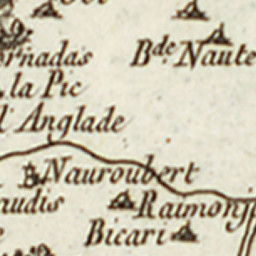 B.de Naute
la Pic
l'Anglade
Nauroubert
audis
Raimonj
Bicari